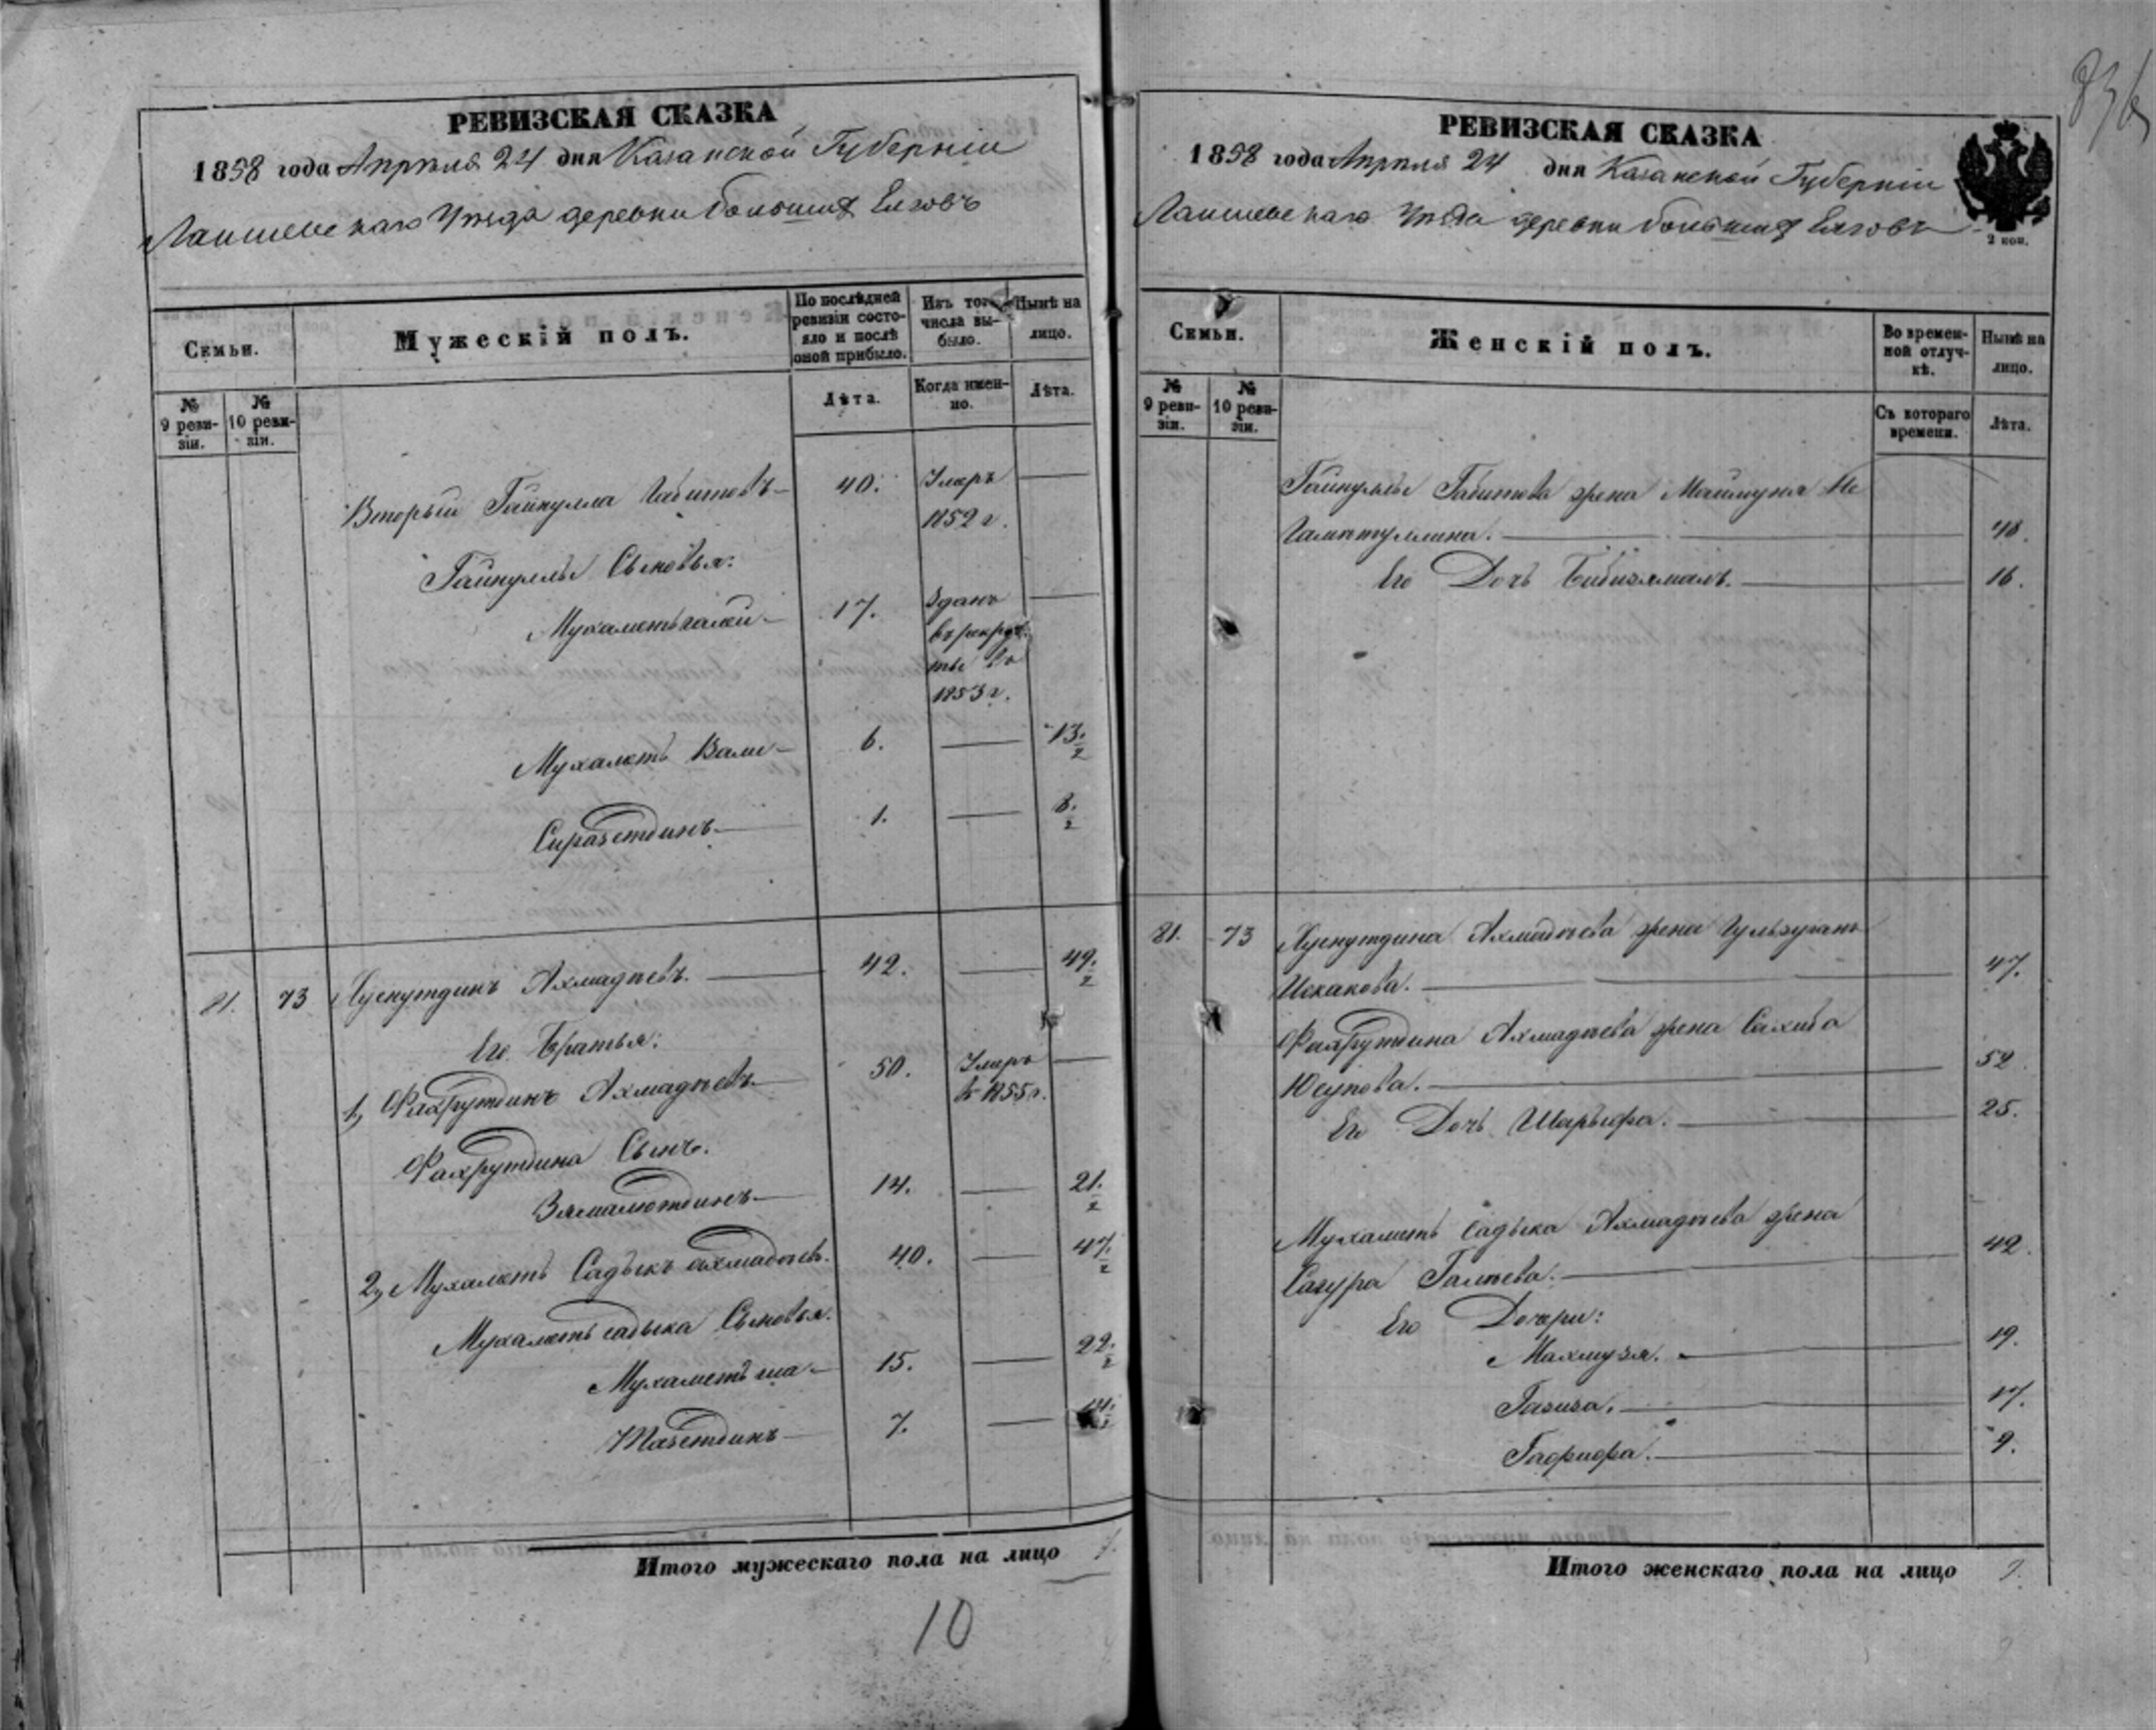 РЕВИЗСКАЯ СКАЗКА
1858 года Апрѣля 24 дня Казанской Губерніи
Лаишевскаго Уѣзда деревни большихъ Елговъ
Семьи.
Мужескій полъ.
По послѣдней ревизіи состояло и послѣ оной прибыло.
Изъ того числа выбыло.
Нынѣ на лицо.
№ 9 ревизіи.
№ 10 ревизіи.
Лѣта.
Когда именно.
Лѣта.
Вторый Гайнулла Габитовъ 40. Умеръ
1852 г.
Гайнуллы Сыновья:
Мухаметьгалей 17. Зданъ
въ рекру
ты въ
1853 г.
Мухаметь Вали 6. 13. 2
Сиразетдинъ 1. 8. 2
81. 73 Хуснутдинъ Ахмадѣевъ. 42. 49. 2
Его Братья:
1, Фахрутдинъ Ахмадѣевъ 50. Умеръ
въ 1855 г.
Фахрутдина Сынъ.
Зямалютдинъ 14. 21. 2
2, Мухаметь Садыкъ Ахмадѣевъ. 40. 47. 2
Мухаметь садыка Сыновья.
Мухаметь ша 15. 22. 2
Тазетдинъ 7. 14. 2
Итого мужескаго пола на лицо 7.
10
РЕВИЗСКАЯ СКАЗКА
1858 года Апрѣля 24 дня Казанской Губерніи
Лаишевскаго Уѣзда деревни большихъ Елговъ
2 коп.
Семьи.
Женскій полъ.
Во временной отлучкѣ.
Нынѣ на лицо.
№ 9 ревизіи.
№ 10 ревизіи.
Съ котораго времени.
Лѣта.
Гайнуллы Габитова жена Маймуна Не
гаматуллина. 48.
Его Дочь Бибизямалъ. 16.
81. 73 Хуснутдина Ахмадѣева жена
Исхакова. 47.
Фахрутдина Ахмадѣева жена Сахиба
Юсупова. 52.
Его Дочь Шарыфа. 25.
Мухаметь Садыка Ахмадѣева жена
Сагура Галѣева. 42.
Его Дочери:
Махмузя. 19.
Газиза. 17.
Гафифа. 9.
Итого женскаго пола на лицо 9.